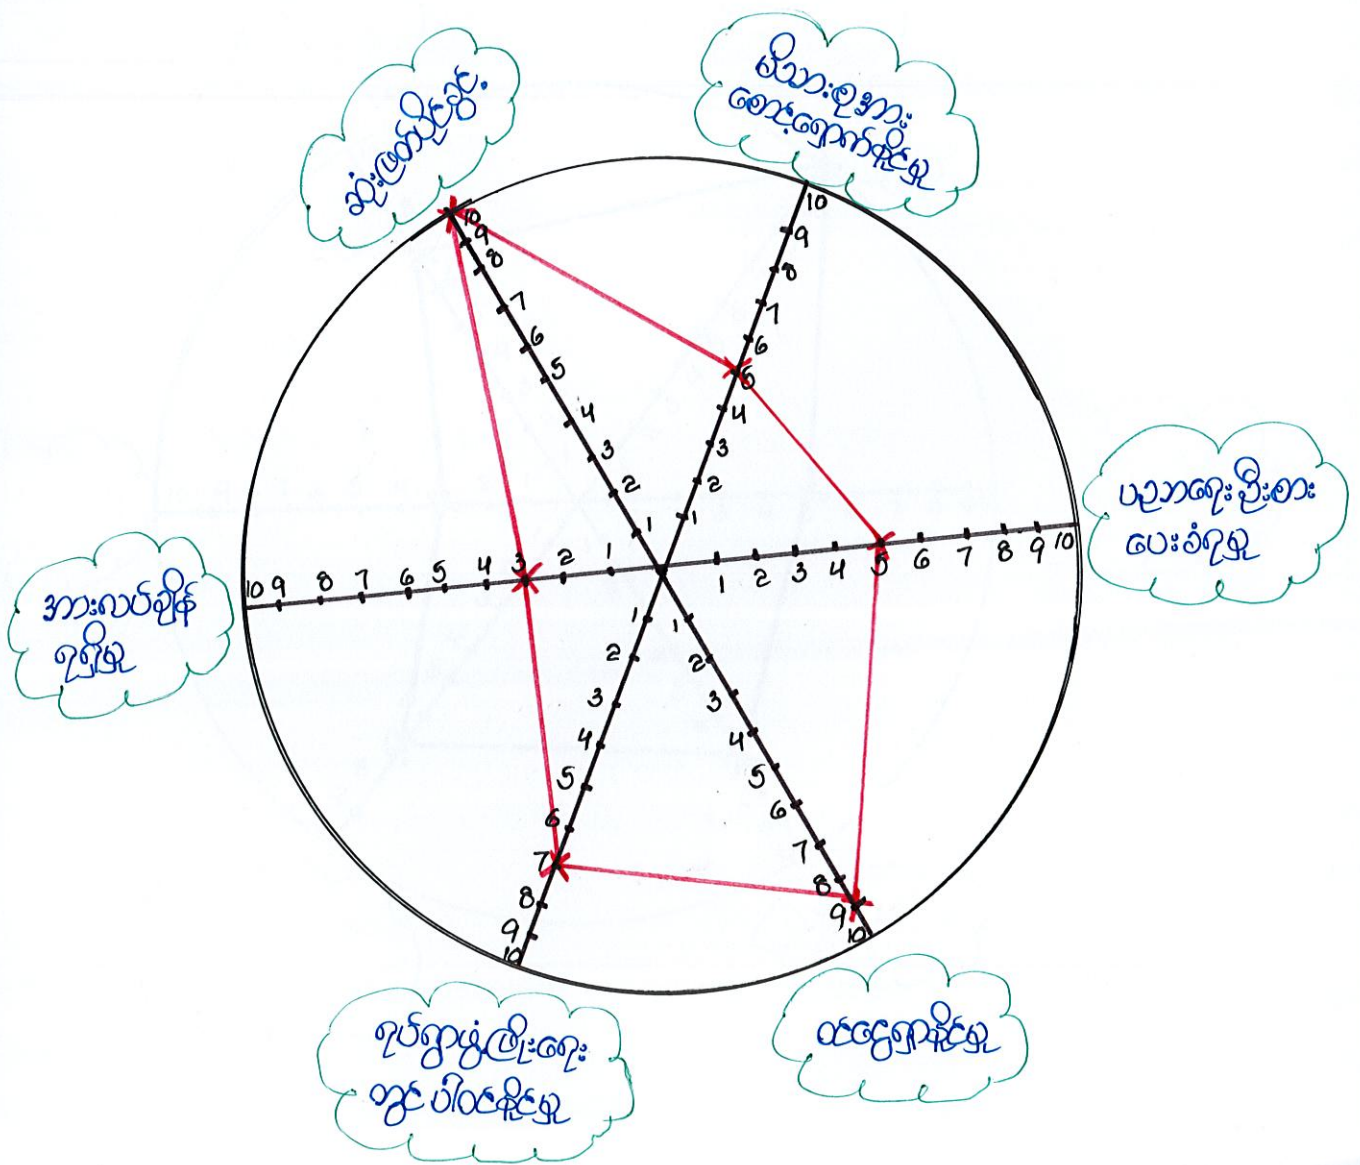 ဆုံးဖြတ်ပိုင်ခွင့်
မိသားစုအား
စောင့်ရှောက်နိုင်မှု
ပညာရေးဦးစား
ပေးခံရမှု
ဝင်ငွေရှာနိုင်မှု
ရပ်ရွာဖွံ့ဖြိုးရေး
တွင် ပါဝင်နိုင်မှု
အားလပ်ချိန်
ရရှိမှု
10 9 8 7 6 5 4 3 2 1
10 9 8 7 6 5 4 3 2 1
1 2 3 4 5 6 7 8 9 10
1 2 3 4 5 6 7 8 9 10
1 2 3 4 5 6 7 8 9 10
10 9 8 7 6 5 4 3 2 1